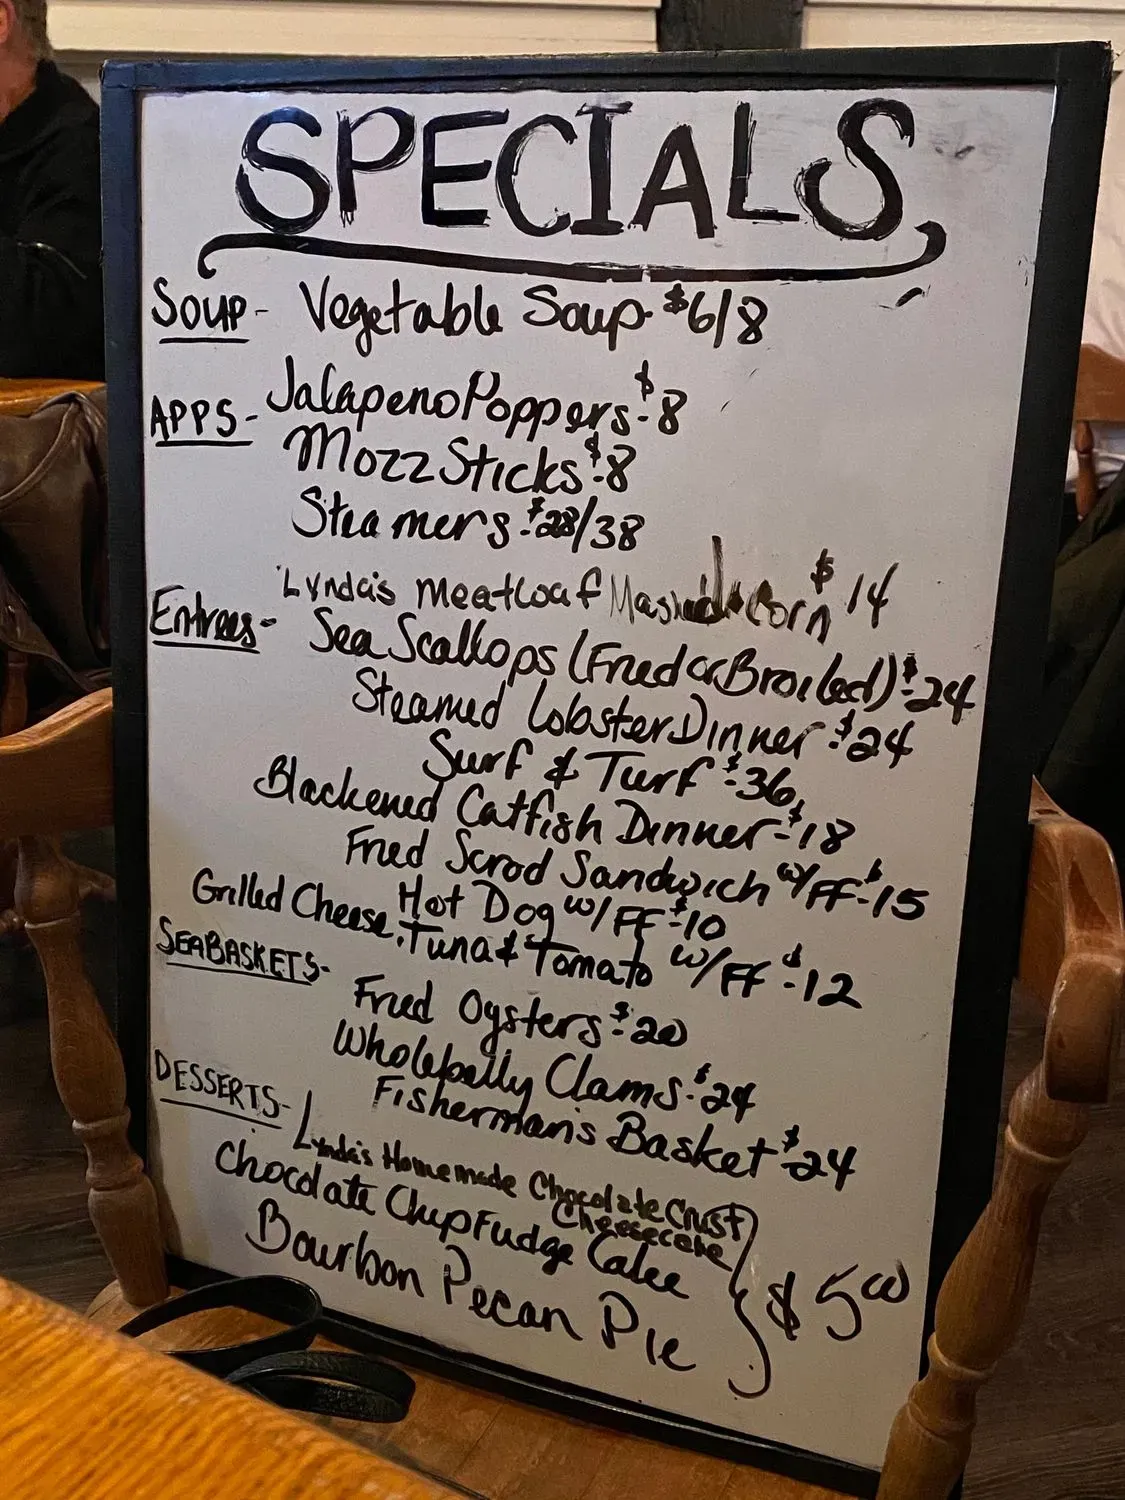 SPECIALS
SOUP - Vegetable Soup - $6/8
APPS - Jalapeno Poppers - $8
Mozz Sticks - $8
Steamers - $28/38
Lynda's Meatloaf Mashed Corn $14
Entrees - Sea Scallops (Fried or Broiled) - $24
Steamed Lobster Dinner - $24
Surf & Turf - $36
Blackened Catfish Dinner - $18
Fried Scrod Sandwich w/FF - $15
Hot Dog w/FF - $10
Grilled Cheese, Tuna & Tomato w/FF - $12
SEABASKETS -
Fried Oysters - $20
Wholebelly Clams - $24
Fisherman's Basket - $24
DESSERTS - Lynda's Homemade Chocolate Crust
Cheesecake
Chocolate Chip Fudge Cake
Bourbon Pecan Pie
$5.00